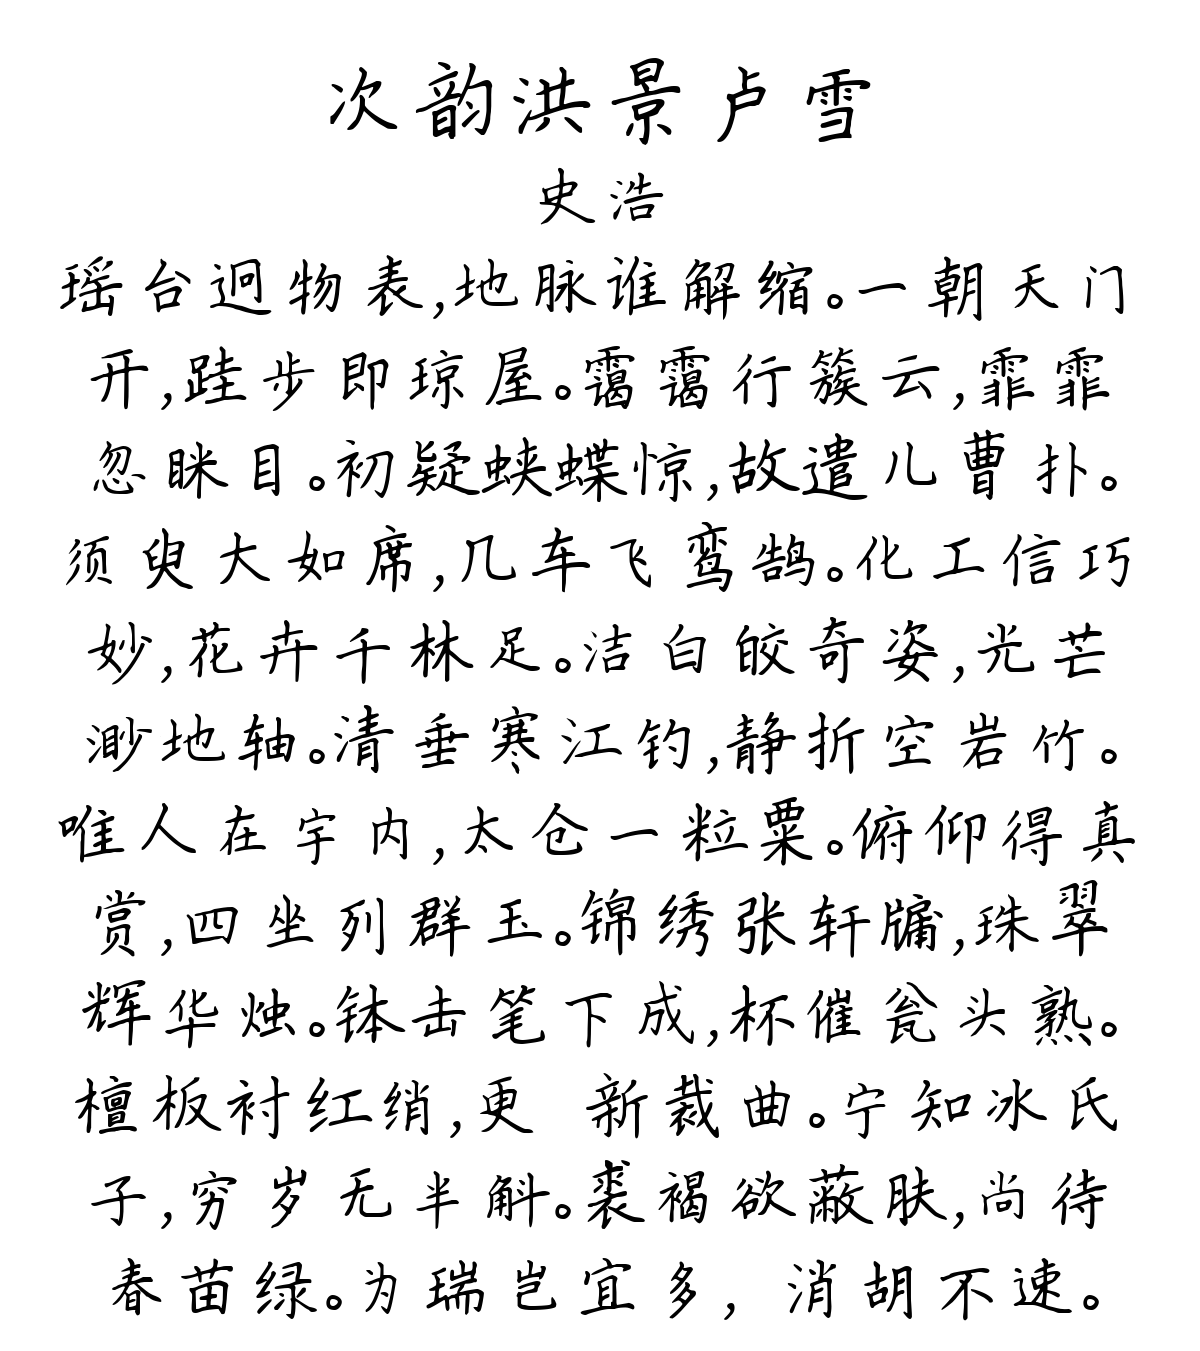 次韵洪景卢雪
史浩
瑶台迥物表,地脉谁解缩。一朝天门
开,跬步即琼屋。霭霭行簇云,霏霏
忽眯目。初疑蛱蝶惊,故遣儿曹扑。
须臾大如席,几车飞鸾鹄。化工信巧
妙,花卉千林足。洁白皎奇姿,光芒
渺地轴。清垂寒江钓,静折空岩竹。
唯人在宇内,太仓一粒粟。俯仰得真
赏,四坐列群玉。锦绣张轩牖,珠翠
辉华烛。钵击笔下成,杯催瓮头熟。
檀板衬红绡,更 新裁曲。宁知冰氏
子,穷岁无半斛。裘褐欲蔽肤,尚待
春苗绿。为瑞岂宜多,消胡不速。